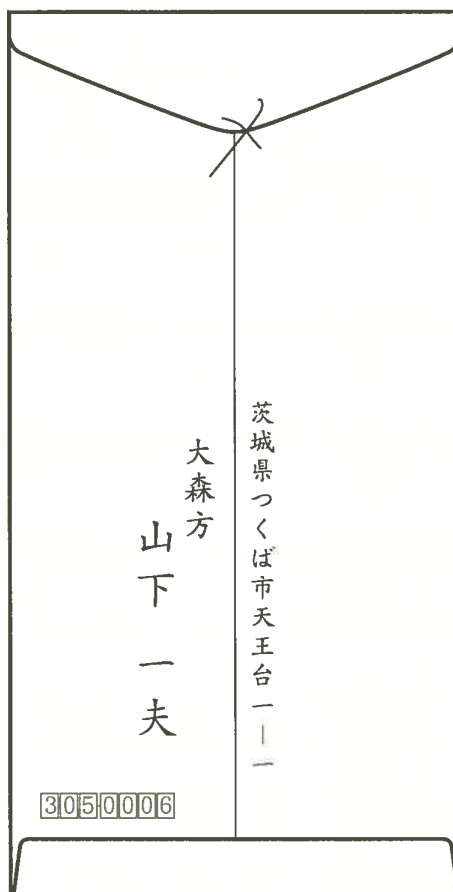 茨城県つくば市天王台一―一
大森方
山下 一夫
3050006